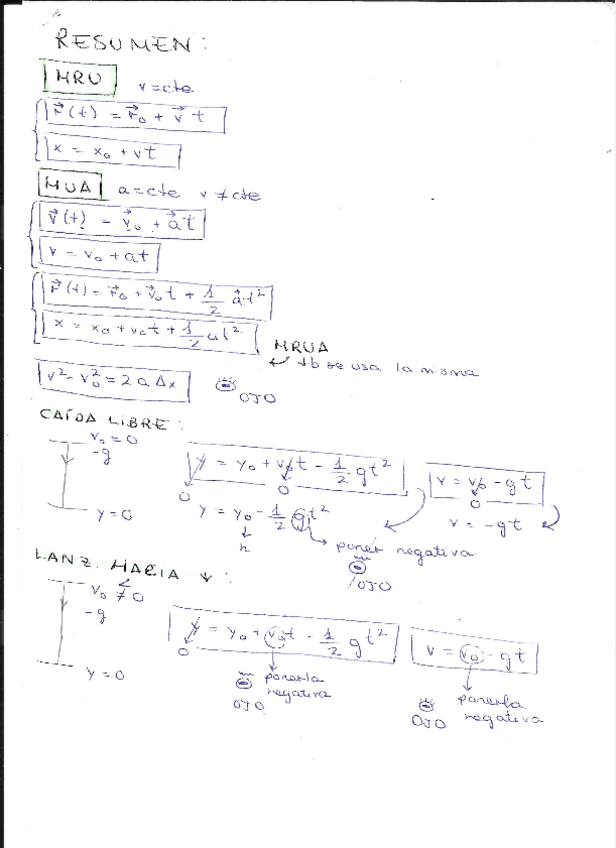 RESUMEN:
MRU v=cte
r⃗(t) = r⃗₀ + v⃗ t
x = x₀ + vt
MUA a=cte v≠cte
v⃗(t) = v⃗₀ + a⃗t
v = v₀ + at
r⃗(t) = r⃗₀ + v⃗₀t + 1/2 a⃗t²
x = x₀ + v₀t + 1/2 at²
MRUA
↙ tb se usa la misma
v² - v₀² = 2aΔx
OJO
CAÍDA LIBRE:
v₀ = 0
-g
y = 0
y = y₀ + v₀t - 1/2 gt²
0 0
v = v₀ - gt
0
y = y₀ - 1/2 gt²
h
→ poner negativa
OJO
v = -gt
LANZ. HACIA ↓:
v₀ ≠ 0
-g
y = 0
y = y₀ + v₀t - 1/2 gt²
0
ponerla
negativa
OJO
v = v₀ - gt
ponerla
negativa
OJO